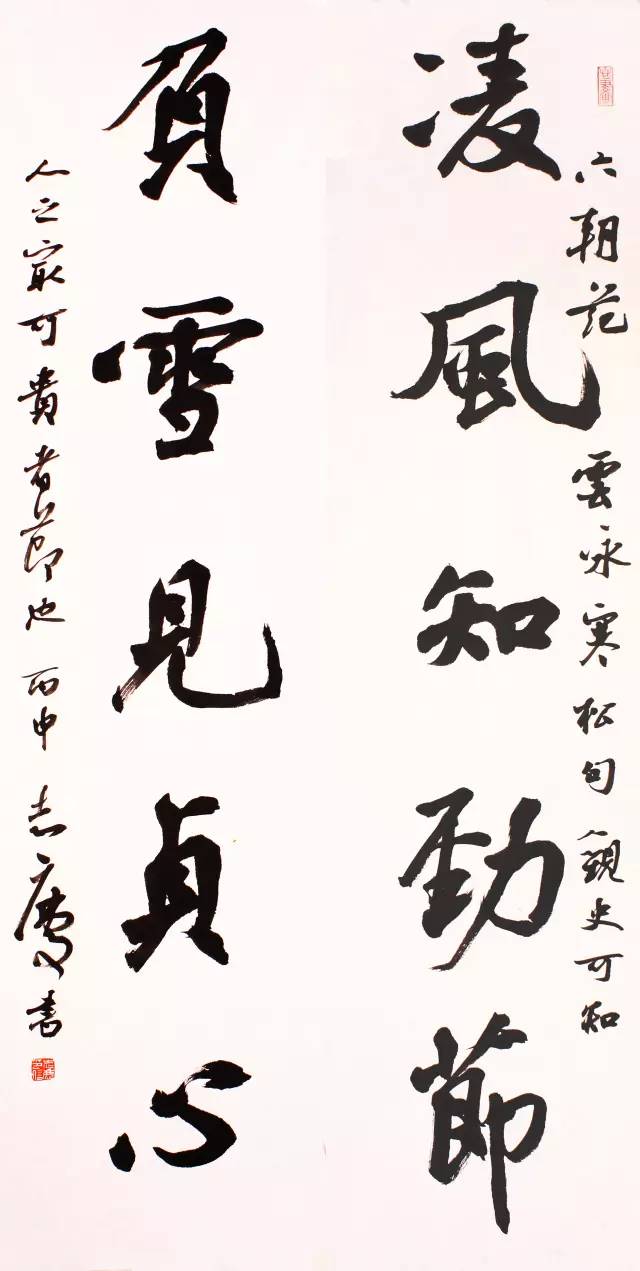 六朝范雲咏寒松句觀史可知
凌風知勁節
負雪見貞心
人之最可貴者節也 丙申 志慶書